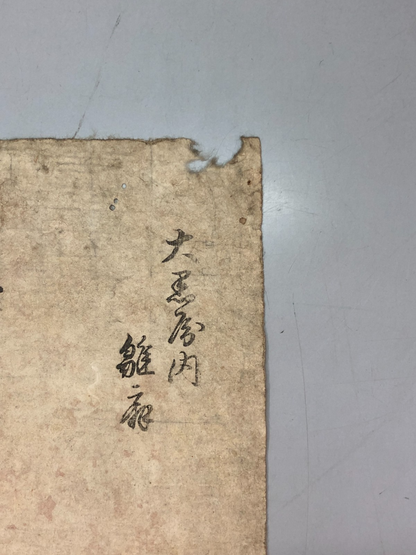 大黒屋内
雛